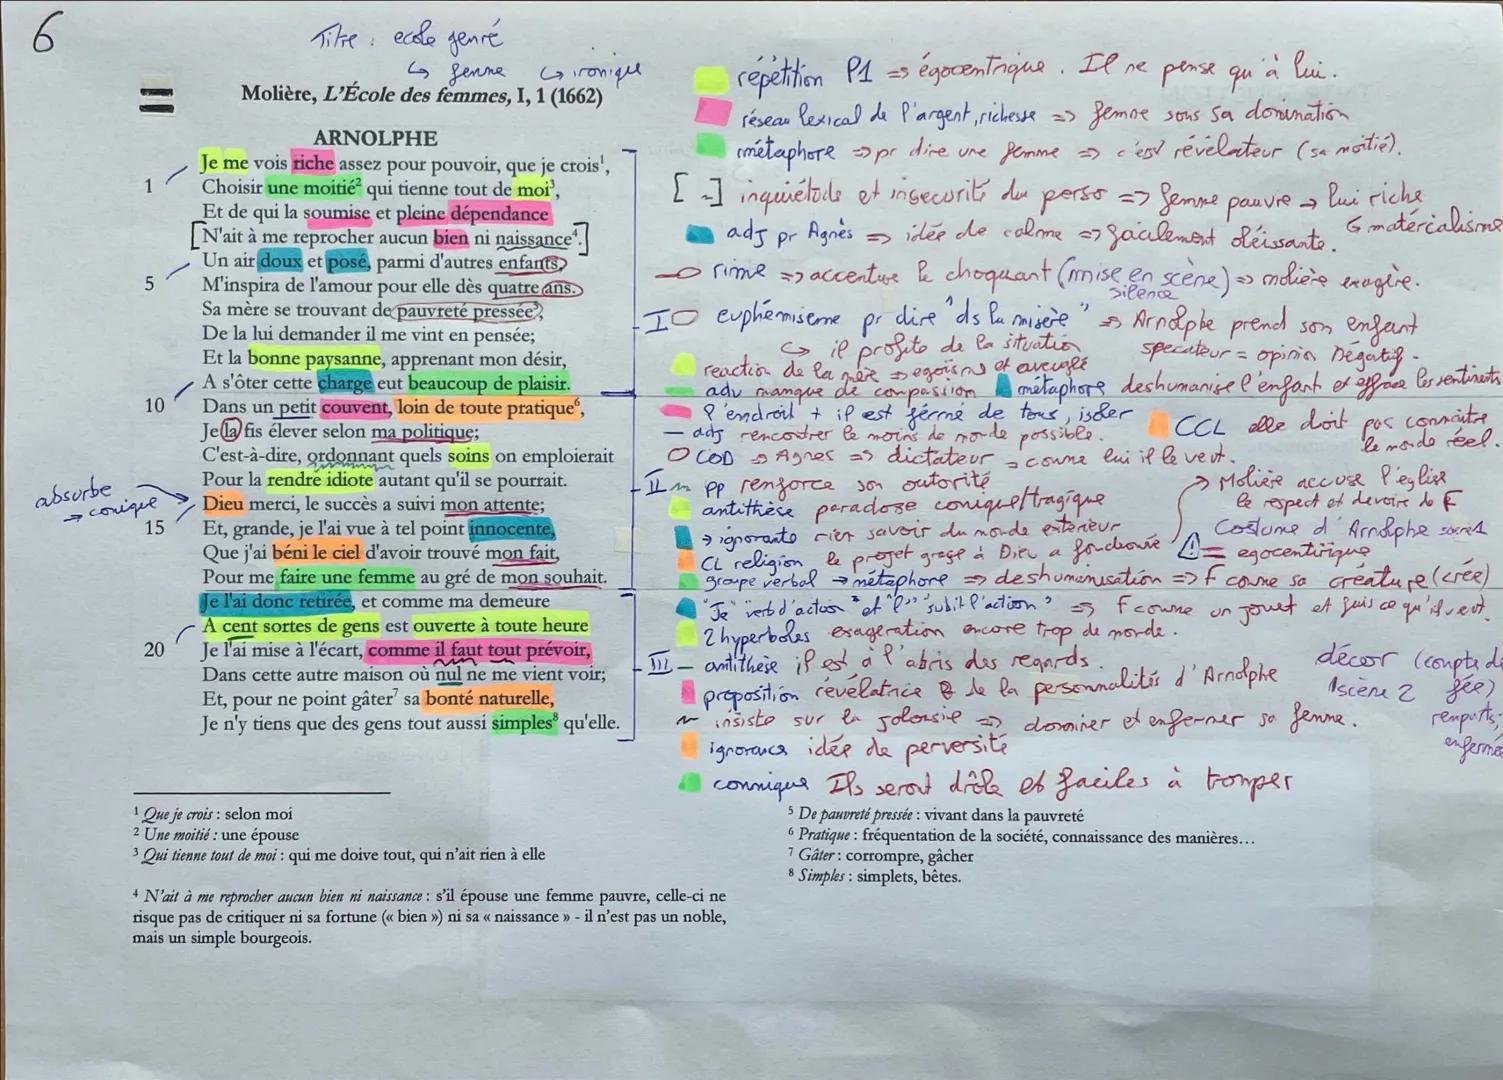 6
Titre : ecole genré
↳ femme ↳ ironique
Molière, L'École des femmes, I, 1 (1662)
ARNOLPHE
Je me vois riche assez pour pouvoir, que je crois¹,
1 Choisir une moitié² qui tienne tout de moi³,
Et de qui la soumise et pleine dépendance
[N'ait à me reprocher aucun bien ni naissance⁴.]
Un air doux et posé, parmi d'autres enfants,
5 M'inspira de l'amour pour elle dès quatre ans.
Sa mère se trouvant de pauvreté pressée⁵,
De la lui demander il me vint en pensée;
Et la bonne paysanne, apprenant mon désir,
A s'ôter cette charge eut beaucoup de plaisir.
10 Dans un petit couvent, loin de toute pratique⁶,
Je la fis élever selon ma politique;
C'est-à-dire, ordonnant quels soins on emploierait
Pour la rendre idiote autant qu'il se pourrait.
absurbe
→ comique
Dieu merci, le succès a suivi mon attente;
15 Et, grande, je l'ai vue à tel point innocente,
Que j'ai béni le ciel d'avoir trouvé mon fait,
Pour me faire une femme au gré de mon souhait.
Je l'ai donc retirée, et comme ma demeure
A cent sortes de gens est ouverte à toute heure
20 Je l'ai mise à l'écart, comme il faut tout prévoir,
Dans cette autre maison où nul ne me vient voir;
Et, pour ne point gâter⁷ sa bonté naturelle,
Je n'y tiens que des gens tout aussi simples⁸ qu'elle.
répétition P1 => égocentrique. Il ne pense qu'à lui.
réseau lexical de l'argent, richesse => femme sous sa domination
métaphore => pr dire une femme => c'est révélateur (sa moitié).
[ ~ ] inquiétude et insecurité du perso => femme pauvre → lui riche
↳ matérialisme
adj pr Agnès => idée de calme => facilement obéissante.
rime => accentue le choquant (mise en scène) => molière exagère.
silence
I euphémisme pr dire "ds la misère" => Arnolphe prend son enfant
↳ il profite de la situation spectateur = opinion négatif.
reaction de la mère => egoïsme et aveuglé
adv manque de compassion métaphore deshumanise l'enfant et efface les sentiments
l'endroit + il est fermé de tous, isoler
CCL elle doit pas connaître le monde réel.
— adj rencontrer le moins de monde possible.
COD => Agnes => dictateur → comme lui il le veut.
II ~ pp renforce son autorité
antithèse paradoxe comique/tragique
→ Molière accuse l'église
le respect et devoir de F
→ ignorante rien savoir du monde exterieur
Costume d'Arnolphe
CL religion le projet grace à Dieu a fonctionné
⚠ = egocentrique
groupe verbal → métaphore => deshumanisation => F comme sa créature (crée)
"Je" verb d'action et "l'" "subit l'action" => F comme un jouet et fais ce qu'il veut.
2 hyperboles exageration encore trop de monde.
III — antithèse il est à l'abris des regards.
proposition révélatrice de la personnalités d'Arnolphe
décor (compte de fée)
scène 2 remparts,
enfermée
~ insiste sur la jolousie => dominer et enfermer sa femme.
ignorance idée de perversité
comique Ils seront drôle et faciles à tromper
¹ Que je crois : selon moi
² Une moitié : une épouse
³ Qui tienne tout de moi : qui me doive tout, qui n'ait rien à elle
⁴ N'ait à me reprocher aucun bien ni naissance : s'il épouse une femme pauvre, celle-ci ne
risque pas de critiquer ni sa fortune (« bien ») ni sa « naissance » - il n'est pas un noble,
mais un simple bourgeois.
⁵ De pauvreté pressée : vivant dans la pauvreté
⁶ Pratique : fréquentation de la société, connaissance des manières…
⁷ Gâter : corrompre, gâcher
⁸ Simples : simplets, bêtes.